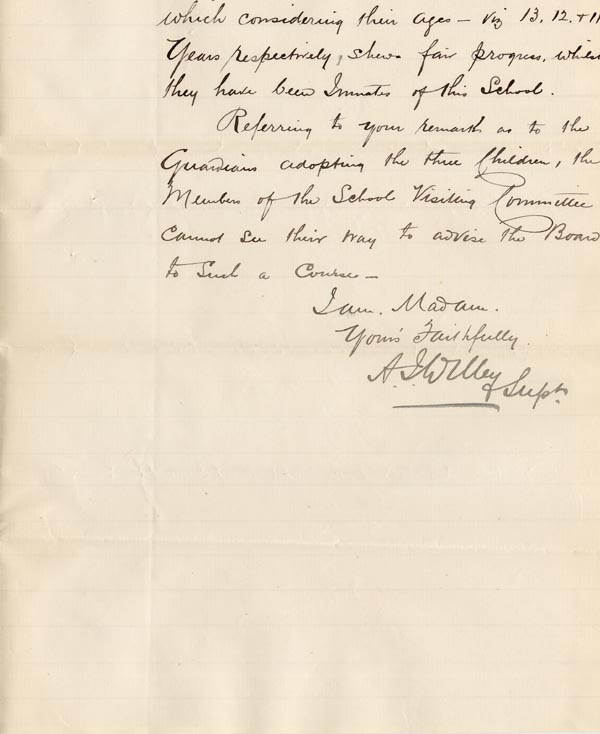 which considering their ages - viz 13, 12, + 11
Years respectively, shews fair progress, whilst
they have been Inmates of this School.
Referring to your remarks as to the
Guardians adopting the three Children, the
Members of the School Visiting Committee
cannot see their way to advise the Board
to Such a Course -
I am, Madam.
Yours Faithfully.
Supt.